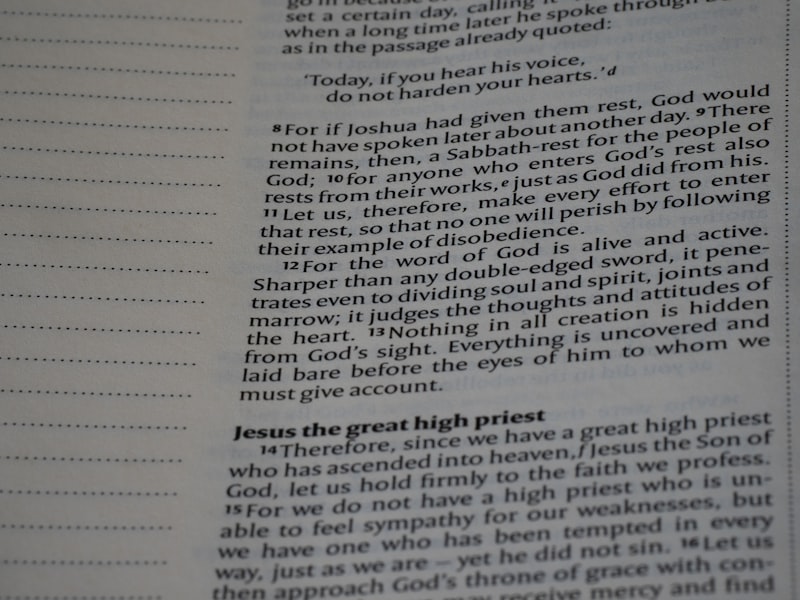 go in because of
set a certain day, calling it
when a long time later he spoke through
as in the passage already quoted:
'Today, if you hear his voice,
do not harden your hearts.'d
8 For if Joshua had given them rest, God would
not have spoken later about another day. 9 There
remains, then, a Sabbath-rest for the people of
God; 10 for anyone who enters God's rest also
rests from their works,e just as God did from his.
11 Let us, therefore, make every effort to enter
that rest, so that no one will perish by following
their example of disobedience.
12 For the word of God is alive and active.
Sharper than any double-edged sword, it pene-
trates even to dividing soul and spirit, joints and
marrow; it judges the thoughts and attitudes of
the heart. 13 Nothing in all creation is hidden
from God's sight. Everything is uncovered and
laid bare before the eyes of him to whom we
must give account.
Jesus the great high priest
14 Therefore, since we have a great high priest
who has ascended into heaven,f Jesus the Son of
God, let us hold firmly to the faith we profess.
15 For we do not have a high priest who is un-
able to feel sympathy for our weaknesses, but
we have one who has been tempted in every
way, just as we are – yet he did not sin. 16 Let us
then approach God's throne of grace with con-
may receive mercy and find